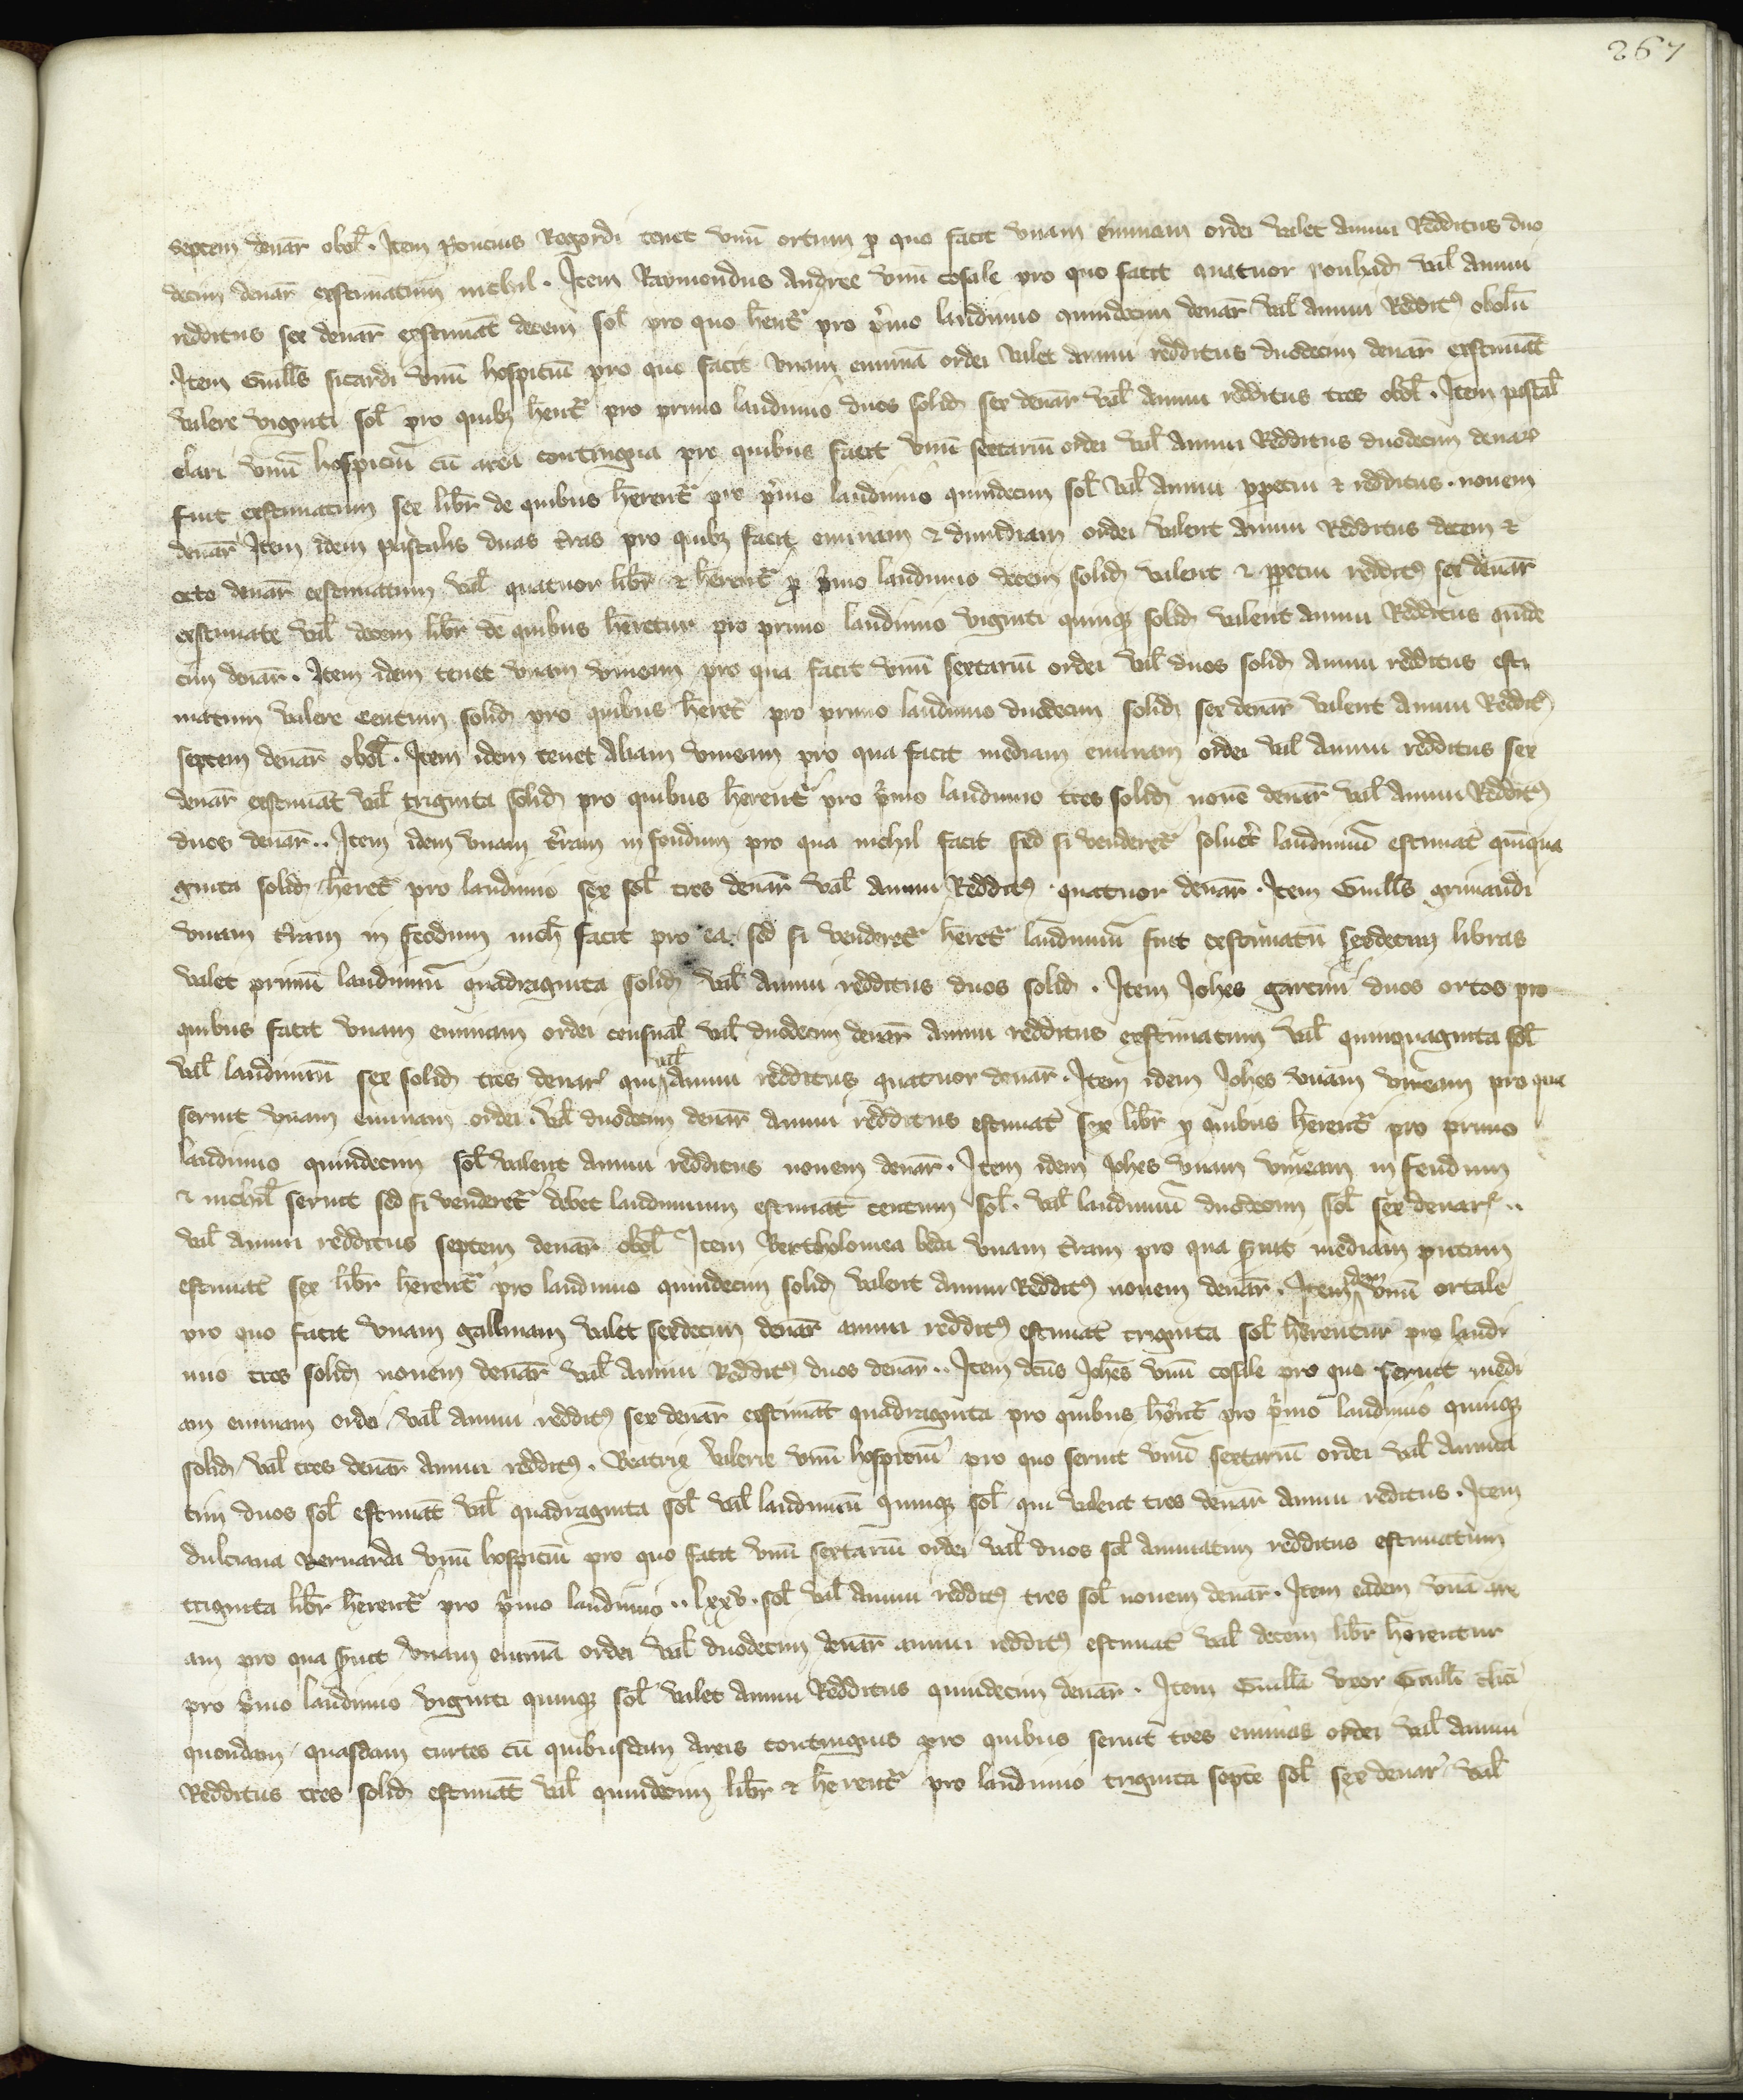 267
septem denar̄ obol̄. Item Poncius Rogordi tenet vnū ortum ꝓ quo facit vnam eminam ordei valet annui Redditus duo
decim denar̄ exstimatum nichil. Item Raymondus Andree vnū casale pro quo facit quatuor val̄ annui
redditus sex denar̄ exstimat̄ decem sol̄ pro quo hent̄ pro p̄mo laudimio quindecim denar̄ val̄ annui Reddit⁹ obolū
Item Guill̄s sicardi vnū hospiciū pro quo facit vnam eminā ordei valet annui redditus duodecim denar̄ exstimat̄
valere viginti sol̄ pro quibȝ hent̄ pro primo laudimio duos solid̄ sex denar̄ val̄ annui redditus tres obol̄. Item pascal̄
clari vnū hospiciū cū area contingua pro quibus facit vnū sextariū ordei val̄ annui Redditus duodecim denar̄
fuit exstimatum sex libr̄ de quibus h̄erent̄ pro p̄mo laudimio quindecim sol̄ val̄ annui ꝑpetui ⁊ redditus. nouem
denar̄ Item idem pascalis duas t̄ras pro quibȝ facit eminam ⁊ dimidiam ordei valent annui Redditus decem ⁊
octo denar̄ exstimatum val̄ quatuor libr̄ ⁊ h̄erent̄ ꝓ p̄mo laudimio decem solid̄ valent ⁊ ꝑpetui reddit⁹ sex denar̄
exstimate val̄ decem libr̄ de quibus h̄eretur pro primo laudimio viginti quinqȝ solid̄ valent annui Redditus quīde
cim denar̄. Item idem tenet vnam vineam pro qua facit vnū sextariū ordei val̄ duos solid̄ annui redditus esti
matum valere centum solid̄ pro quibus h̄eret̄ pro primo laudimio duodecim solid̄ sex denar̄ valent annui Reddit⁹
septem denar̄ obol̄. Item idem tenet aliam vineam pro qua facit mediam eminam ordei val̄ annui redditus sex
denar̄ exstimat̄ val̄ triginta solid̄ pro quibus h̄erent̄ pro p̄mo laudimio tres solid̄ nouē denar̄ val̄ annui Reddit⁹
duos denar̄.. Item idem vnam t̄ram in feudum pro qua nichil facit sed si venderet̄ soluet̄ laudimiū estimat̄ quīqua
ginta solid̄ h̄eret̄ pro laudimio sex sol̄ tres denar̄ val̄ annui Reddit⁹. quatuor denar̄. Item Guill̄s grimaudi
vnam t̄ram in feodum nich̄ facit pro ea. sed si venderet̄ h̄eret̄ laudimiū fuit exstimatū sexdecim libras
valet primū laudimiū quadraginta solid̄ val̄ annui redditus duos solid̄. Item Joh̄es garcini duos ortos pro
quibus facit vnam eminam ordei censual̄ val̄ duodecim denar̄ annui redditus exstimatum val̄ quinquaginta sol̄
val̄ laudimiū sex solid̄ tres denar̄ qui val̄ annui redditus quatuor denar̄. Item idem Joh̄es vnam vineam pro qua
seruit vnam eminam ordei. val̄ duodecim denar̄ annui redditus estimat̄ sex libr̄ ꝓ quibus h̄erent̄ pro primo
laudimio quindecim sol̄ valent annui redditus nouem denar̄. Item idem Joh̄es vnam vineam in feudum
⁊ nichil̄ seruit sed si venderet̄ debet laudimium estimat̄ centum sol̄. val̄ laudimiū duodecim sol̄ sex denar̄..
val̄ annui redditus septem denar̄ obol̄ Item Bertholomea beda vnam t̄ram pro qua s̄uit mediam
estimat̄ sex libr̄ h̄erent̄ pro laudimio quindecim solid̄ valent annui Reddit⁹ nouem denar̄. Item dem vnū ortale
pro quo facit vnam gallinam valet sexdecim denar̄ annui reddit⁹ estimat̄ triginta sol̄ h̄erentur pro laudi
mio tres solid̄ nouem denar̄ val̄ annui Reddit⁹ duos denar̄.. Item dc̄us Joh̄es vnū casale pro quo seruit medi
am eminam ordei val̄ annui reddit⁹ sex denar̄ exstimat̄ quadraginta pro quibus h̄erēt̄ pro p̄mo laudimio quinqȝ
solid̄ val̄ tres denar̄ annui reddit⁹. Beatrix valerie vnū hospiciū pro quo seruit vnū sextariū ordei val̄ annua
tim duos sol̄ estimat̄ val̄ quadraginta sol̄ val̄ laudimiū quinqȝ sol̄ qui valent tres denar̄ annui reditus. Item
dulciana Bernarda vnū hospiciū pro quo facit vnū sextariū ordei val̄ duos sol̄ annuatim redditus estimatum
triginta libr̄ h̄erent̄ pro p̄mo laudimio.. lxxv. sol̄ val̄ annui reddit⁹ tres sol̄ nouem denar̄. Item eadem vnā are
am pro qua s̄uit vnam eminā ordei val̄ duodecim denar̄ annui reddit⁹ estimat̄ val̄ decem libr̄ h̄erentur
pro p̄mo laudimio viginti quinqȝ sol̄ valet annui Redditus quindecim denar̄. Item Guill̄a vxor Guill̄i
quondam quasdam curtes cū quibusdam areis continguis pro quibus seruit tres eminas ordei val̄ annui
Redditus tres solid̄ estimat̄ val̄ quindecim libr̄ ⁊ h̄erent̄ pro laudimio triginta septē sol̄ sex denar̄ val̄